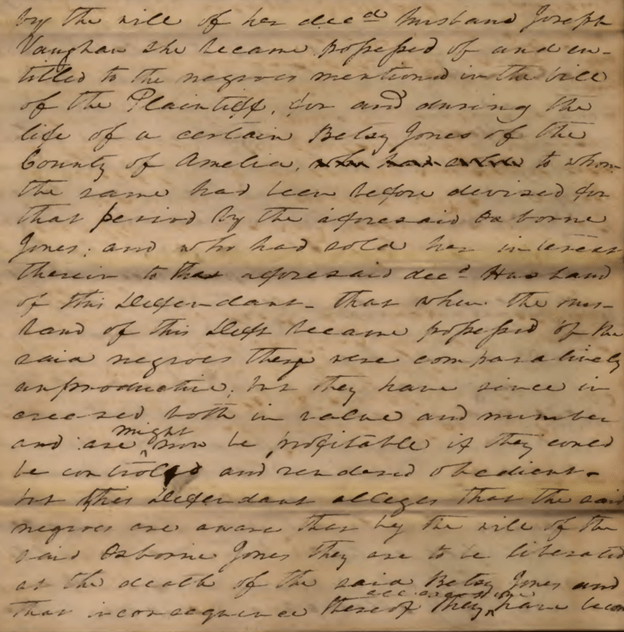 by the will of her decd husband Joseph
Vaughan she became possessed of and en-
titled to the negroes mentioned in the bill
of the Plaintiff, for and during the
life of a certain Betsy Jones of the
County of Amelia, who had sold to whom
the same had been before devised for
that period by the aforesaid Osborne
Jones; and who had sold her interest
therein to the aforesaid decd Husband
of this Defendant - that when the hus-
band of this Deft became possessed of the
said negroes they were comparatively
unproductive; but they have since in
creased both in value and number
and are now might be profitable if they could
be controled and rendered obedient -
but this Defendant alleges that the said
negroes are aware that by the will of the
said Osborne Jones they are to be liberated
at the death of the said Betsy Jones and
that in consequence thereof they have becom